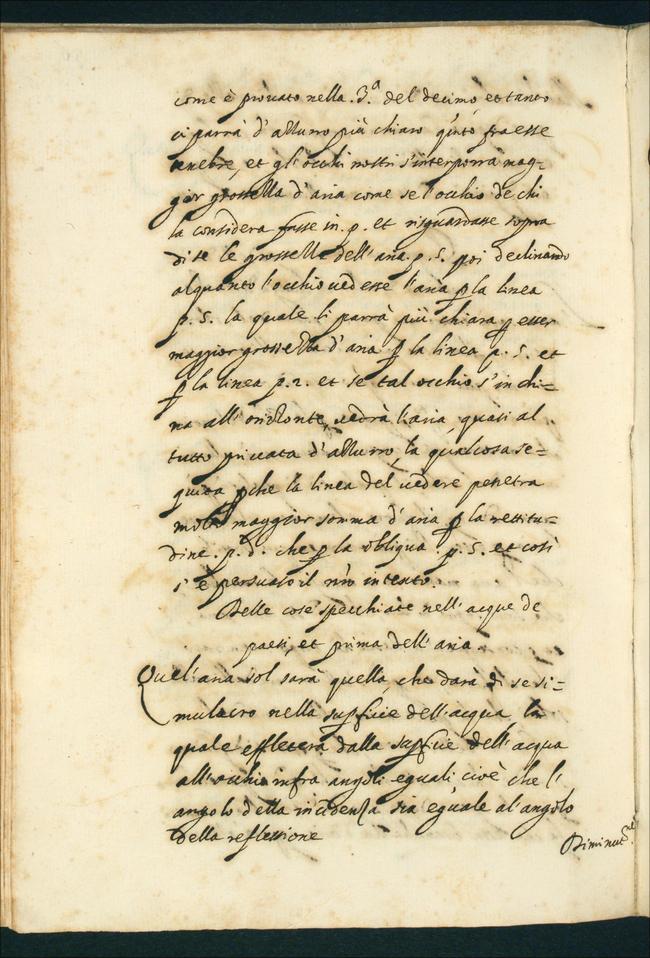 come è prouato nella .3.ª del decimo, et tanto
ci parrà d'allurro più chiaro q̃nto fra esse
tenebre, et gl'occhi nostri s'interporrà mag=
gior grossella d'aria come se l'occhio de chi
la considera fusse in .p. et risguardasse sopra
di se le grossella dell'aria .p. s. poi declinando
alquanto l'occhio uedesse l'aria ꝑ la linea
p. s. la quale li parrà più chiara ꝑ esser
maggior grossella d'aria ꝑ la linea p. s. et
ꝑ la linea p. 2. et se tal occhio s'inchi=
na all'orizonte, uedrà l'aria quasi al
tutto priuata d'allurro, la qual cosa se=
guita ꝑche la linea del uedere penetra
molto maggior somma d'aria ꝑ la rettitu=
dine .p. d. che ꝑ la obliqua .p. s. et così
s'è persuaso il nr̃o intento.
Delle cose specchiate nell'acque de
paesi, et prima dell'aria.
Quell'aria sol sarà quella, che darà di se si=
mulacro nella suꝑficie dell'acqua, la
quale effletterà dalla suꝑficie dell'acqua
all'occhio infra angoli eguali cioè che l'
angolo della incidenza sia eguale al'angolo
della reflessione
Diminut.ne